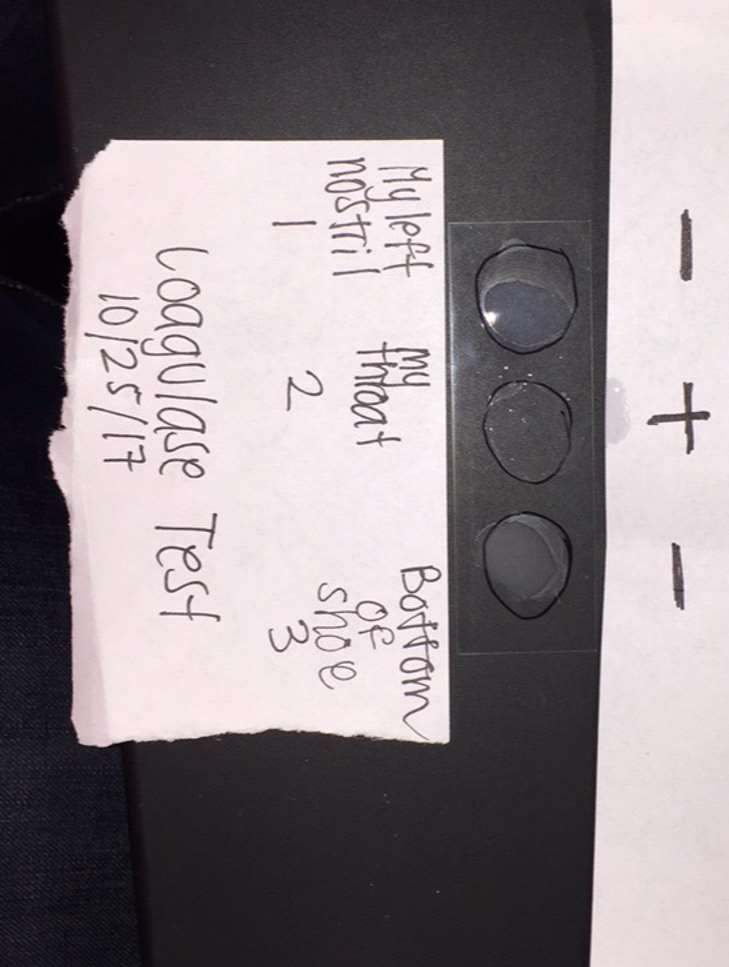 - + -
My left nostril 1
my throat 2
Bottom of shoe 3
Coagulase Test
10/25/17